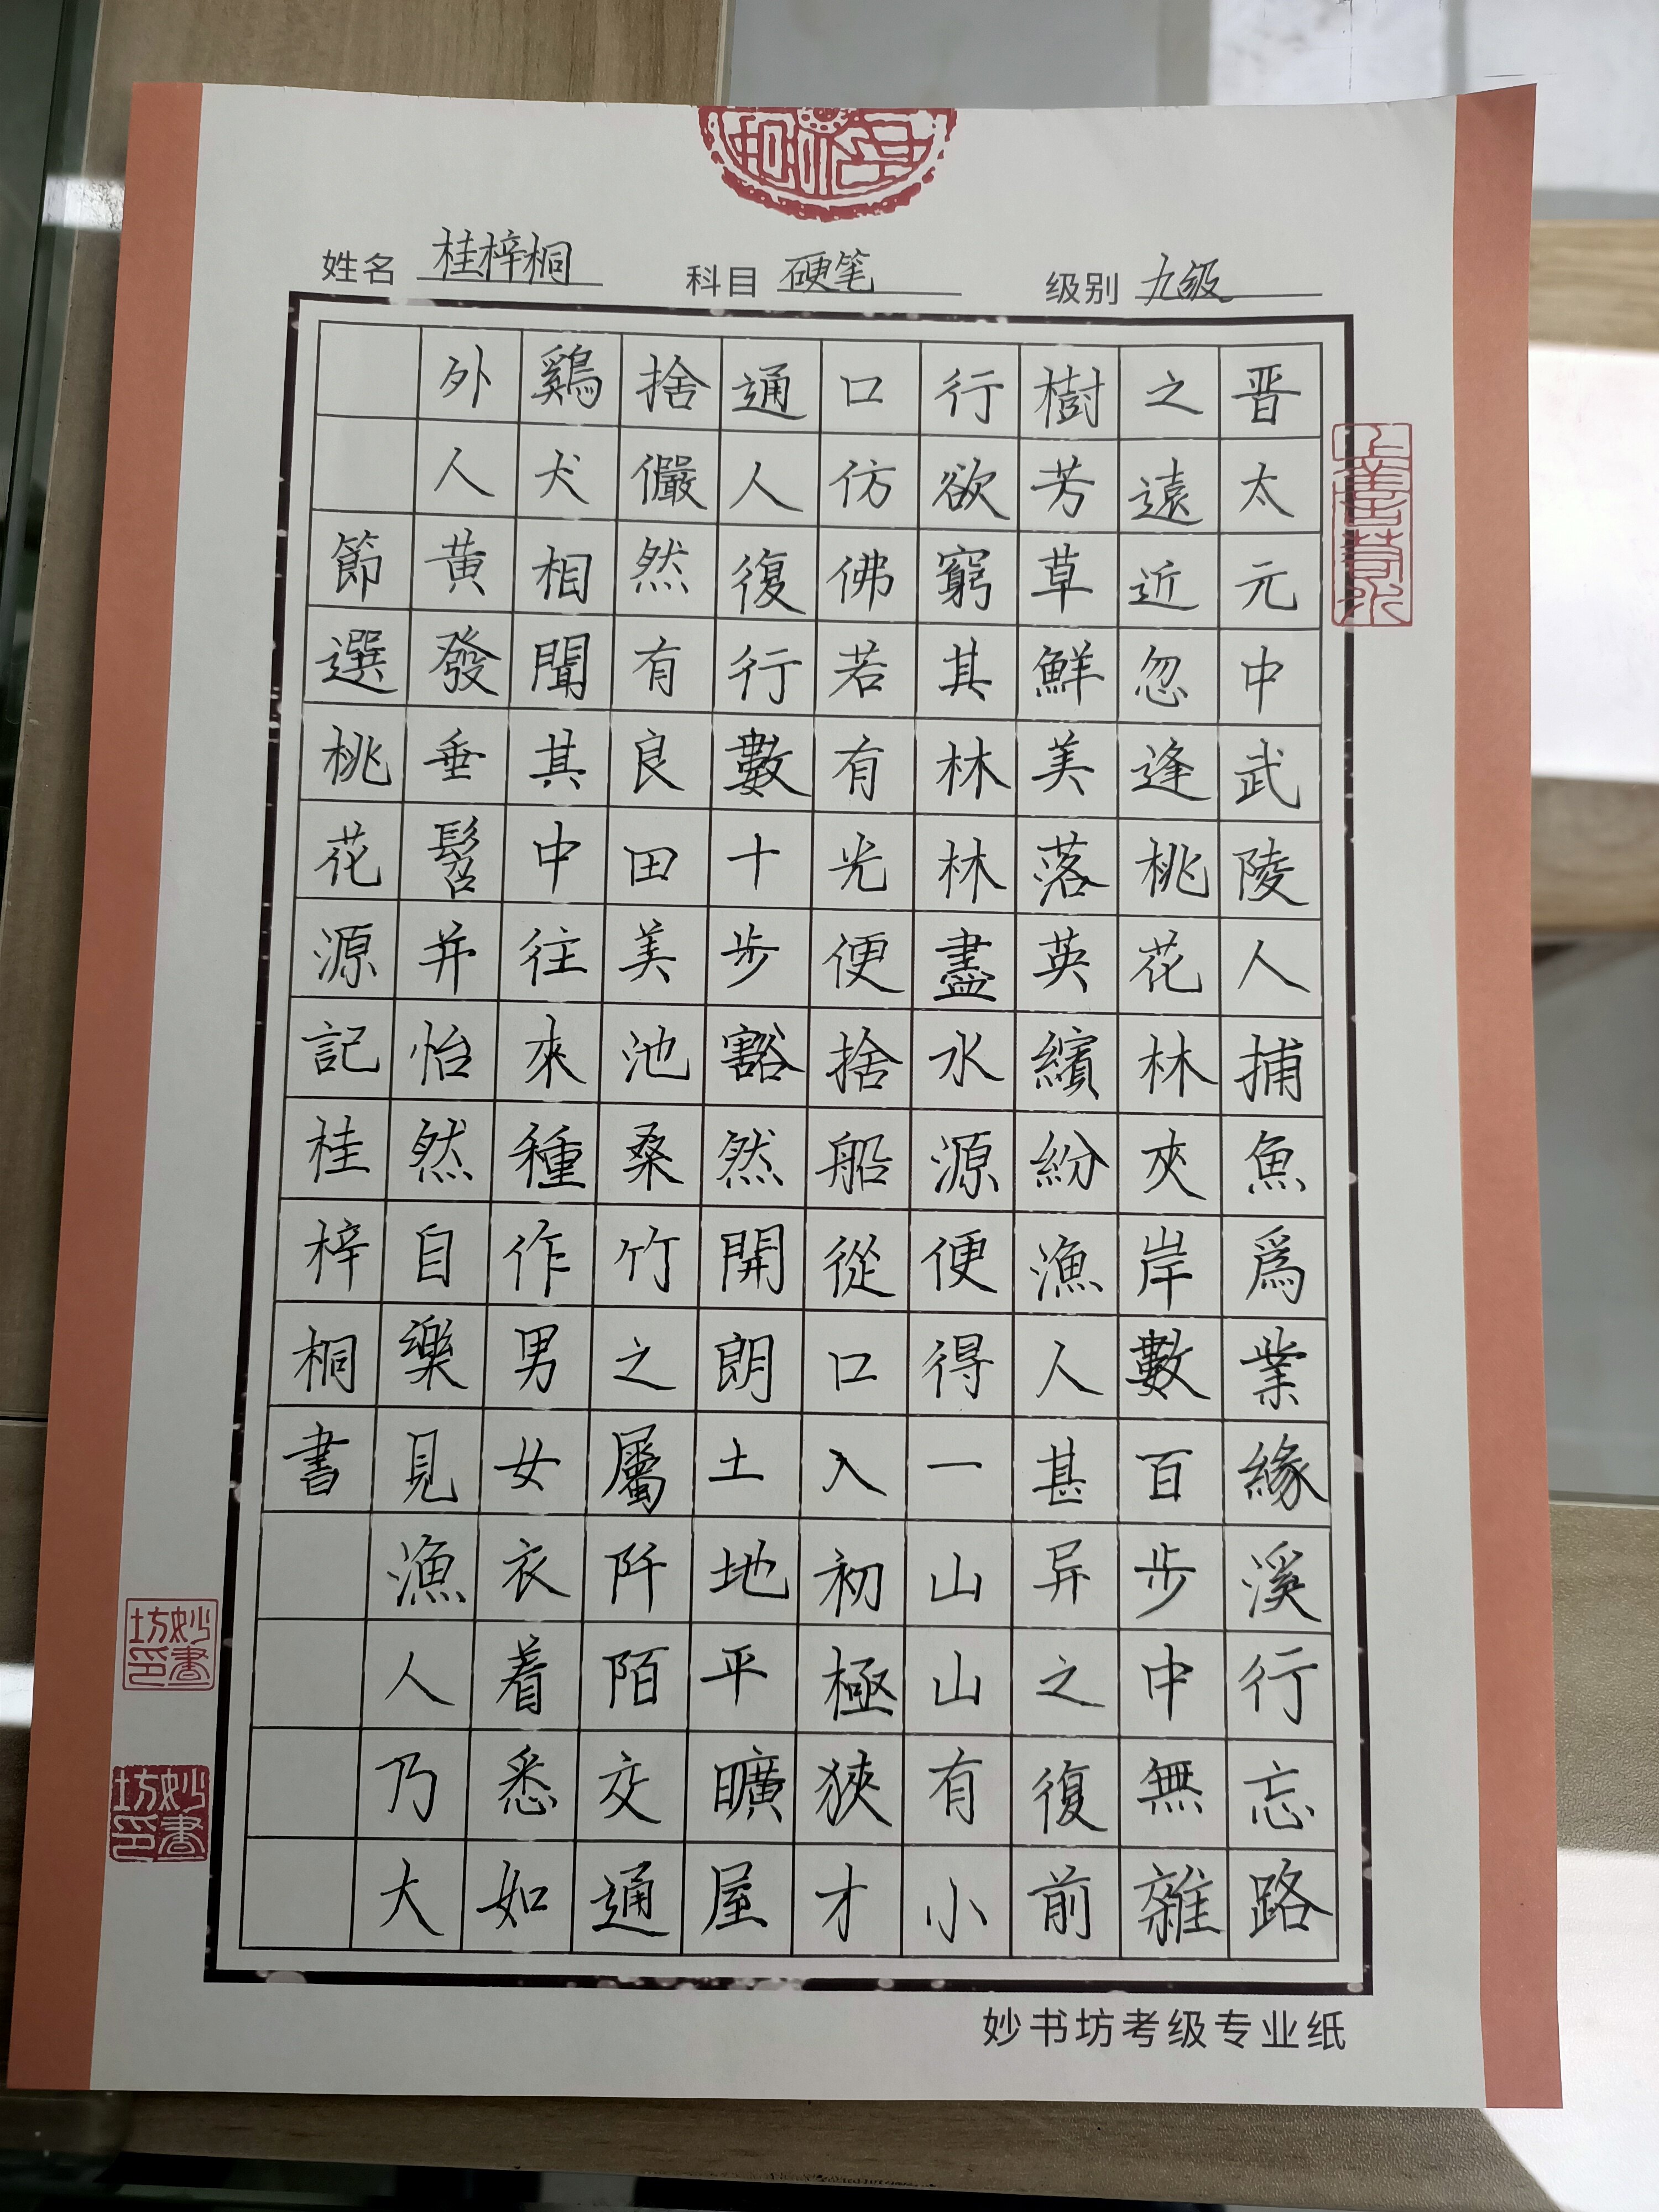 姓名 桂梓桐 科目 硬笔 级别 九级
晋太元中武陵人捕魚爲業緣溪行忘路
之遠近忽逢桃花林夾岸數百步中無雜
樹芳草鮮美落英繽紛漁人甚异之復前
行欲窮其林林盡水源便得一山山有小
口仿佛若有光便捨船從口入初極狹才
通人復行數十步豁然開朗土地平曠屋
捨儼然有良田美池桑竹之屬阡陌交通
鷄犬相聞其中往來種作男女衣着悉如
外人黄發垂髫并怡然自樂見漁人乃大
節選桃花源記桂梓桐書
上善若水
妙書坊印
妙書坊印
妙书坊考级专业纸